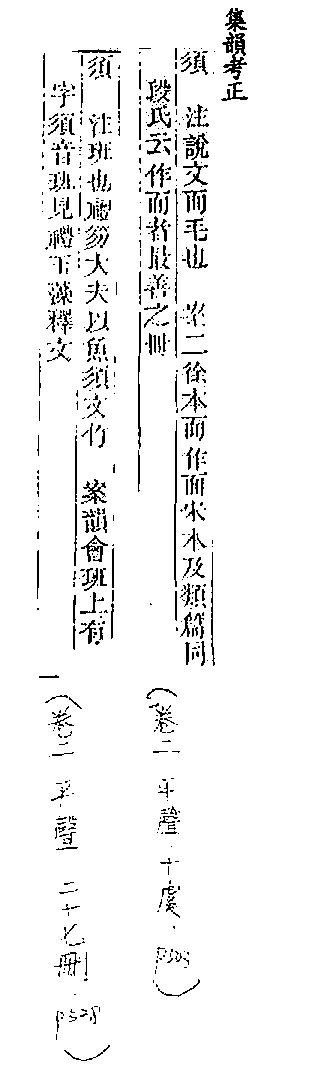 集韻考正
須 注說文面毛也 案二徐本面作而宋本及類篇同
段氏云作而者最善之冊
須 注班也禮笏大夫以魚須文竹 案韻會班上有
字須音班見禮玉藻釋文
(卷二 平聲 十虞. P505)
(卷二 平聲 二十七刪. P528)